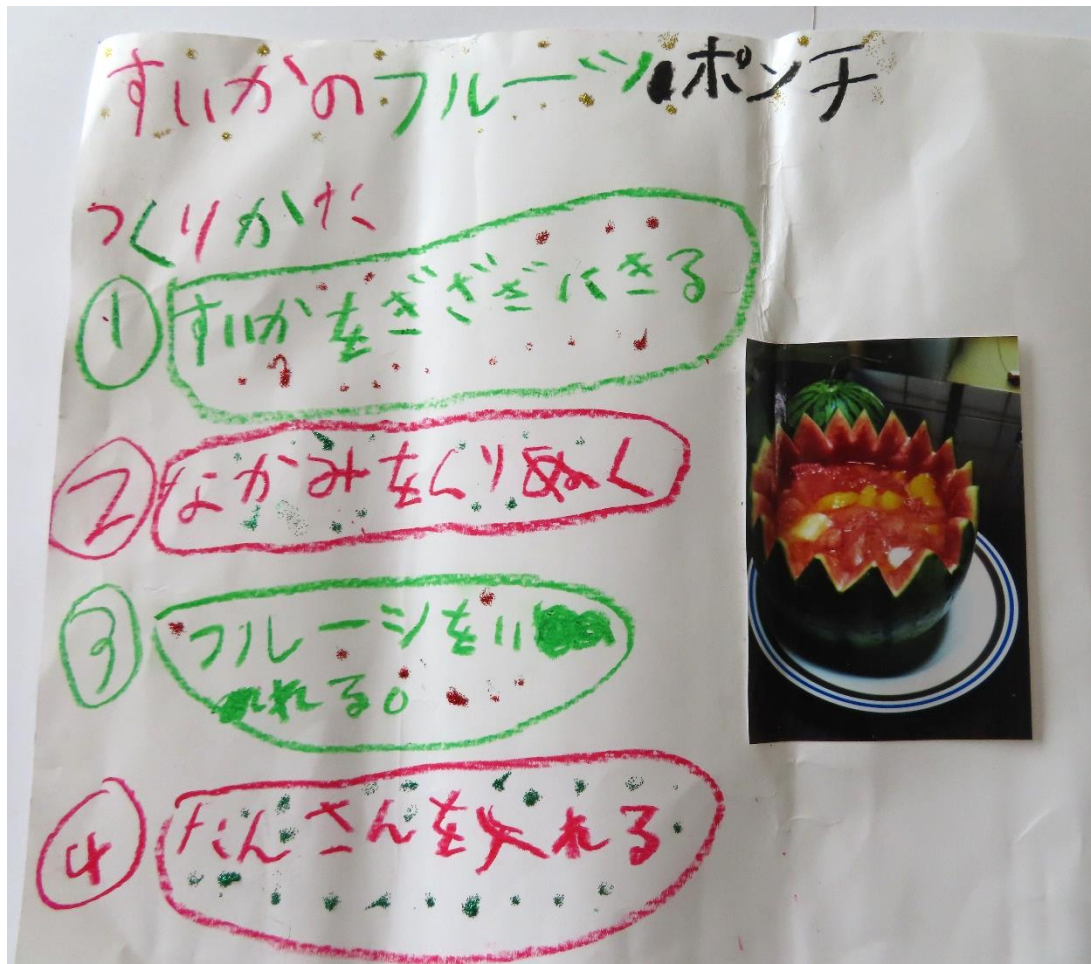 すいかのフルーツポンチ
つくりかた
① すいかをぎざぎざにきる
② なかみをくりぬく
③ フルーツをい
れる。
④ たんさんを入れる